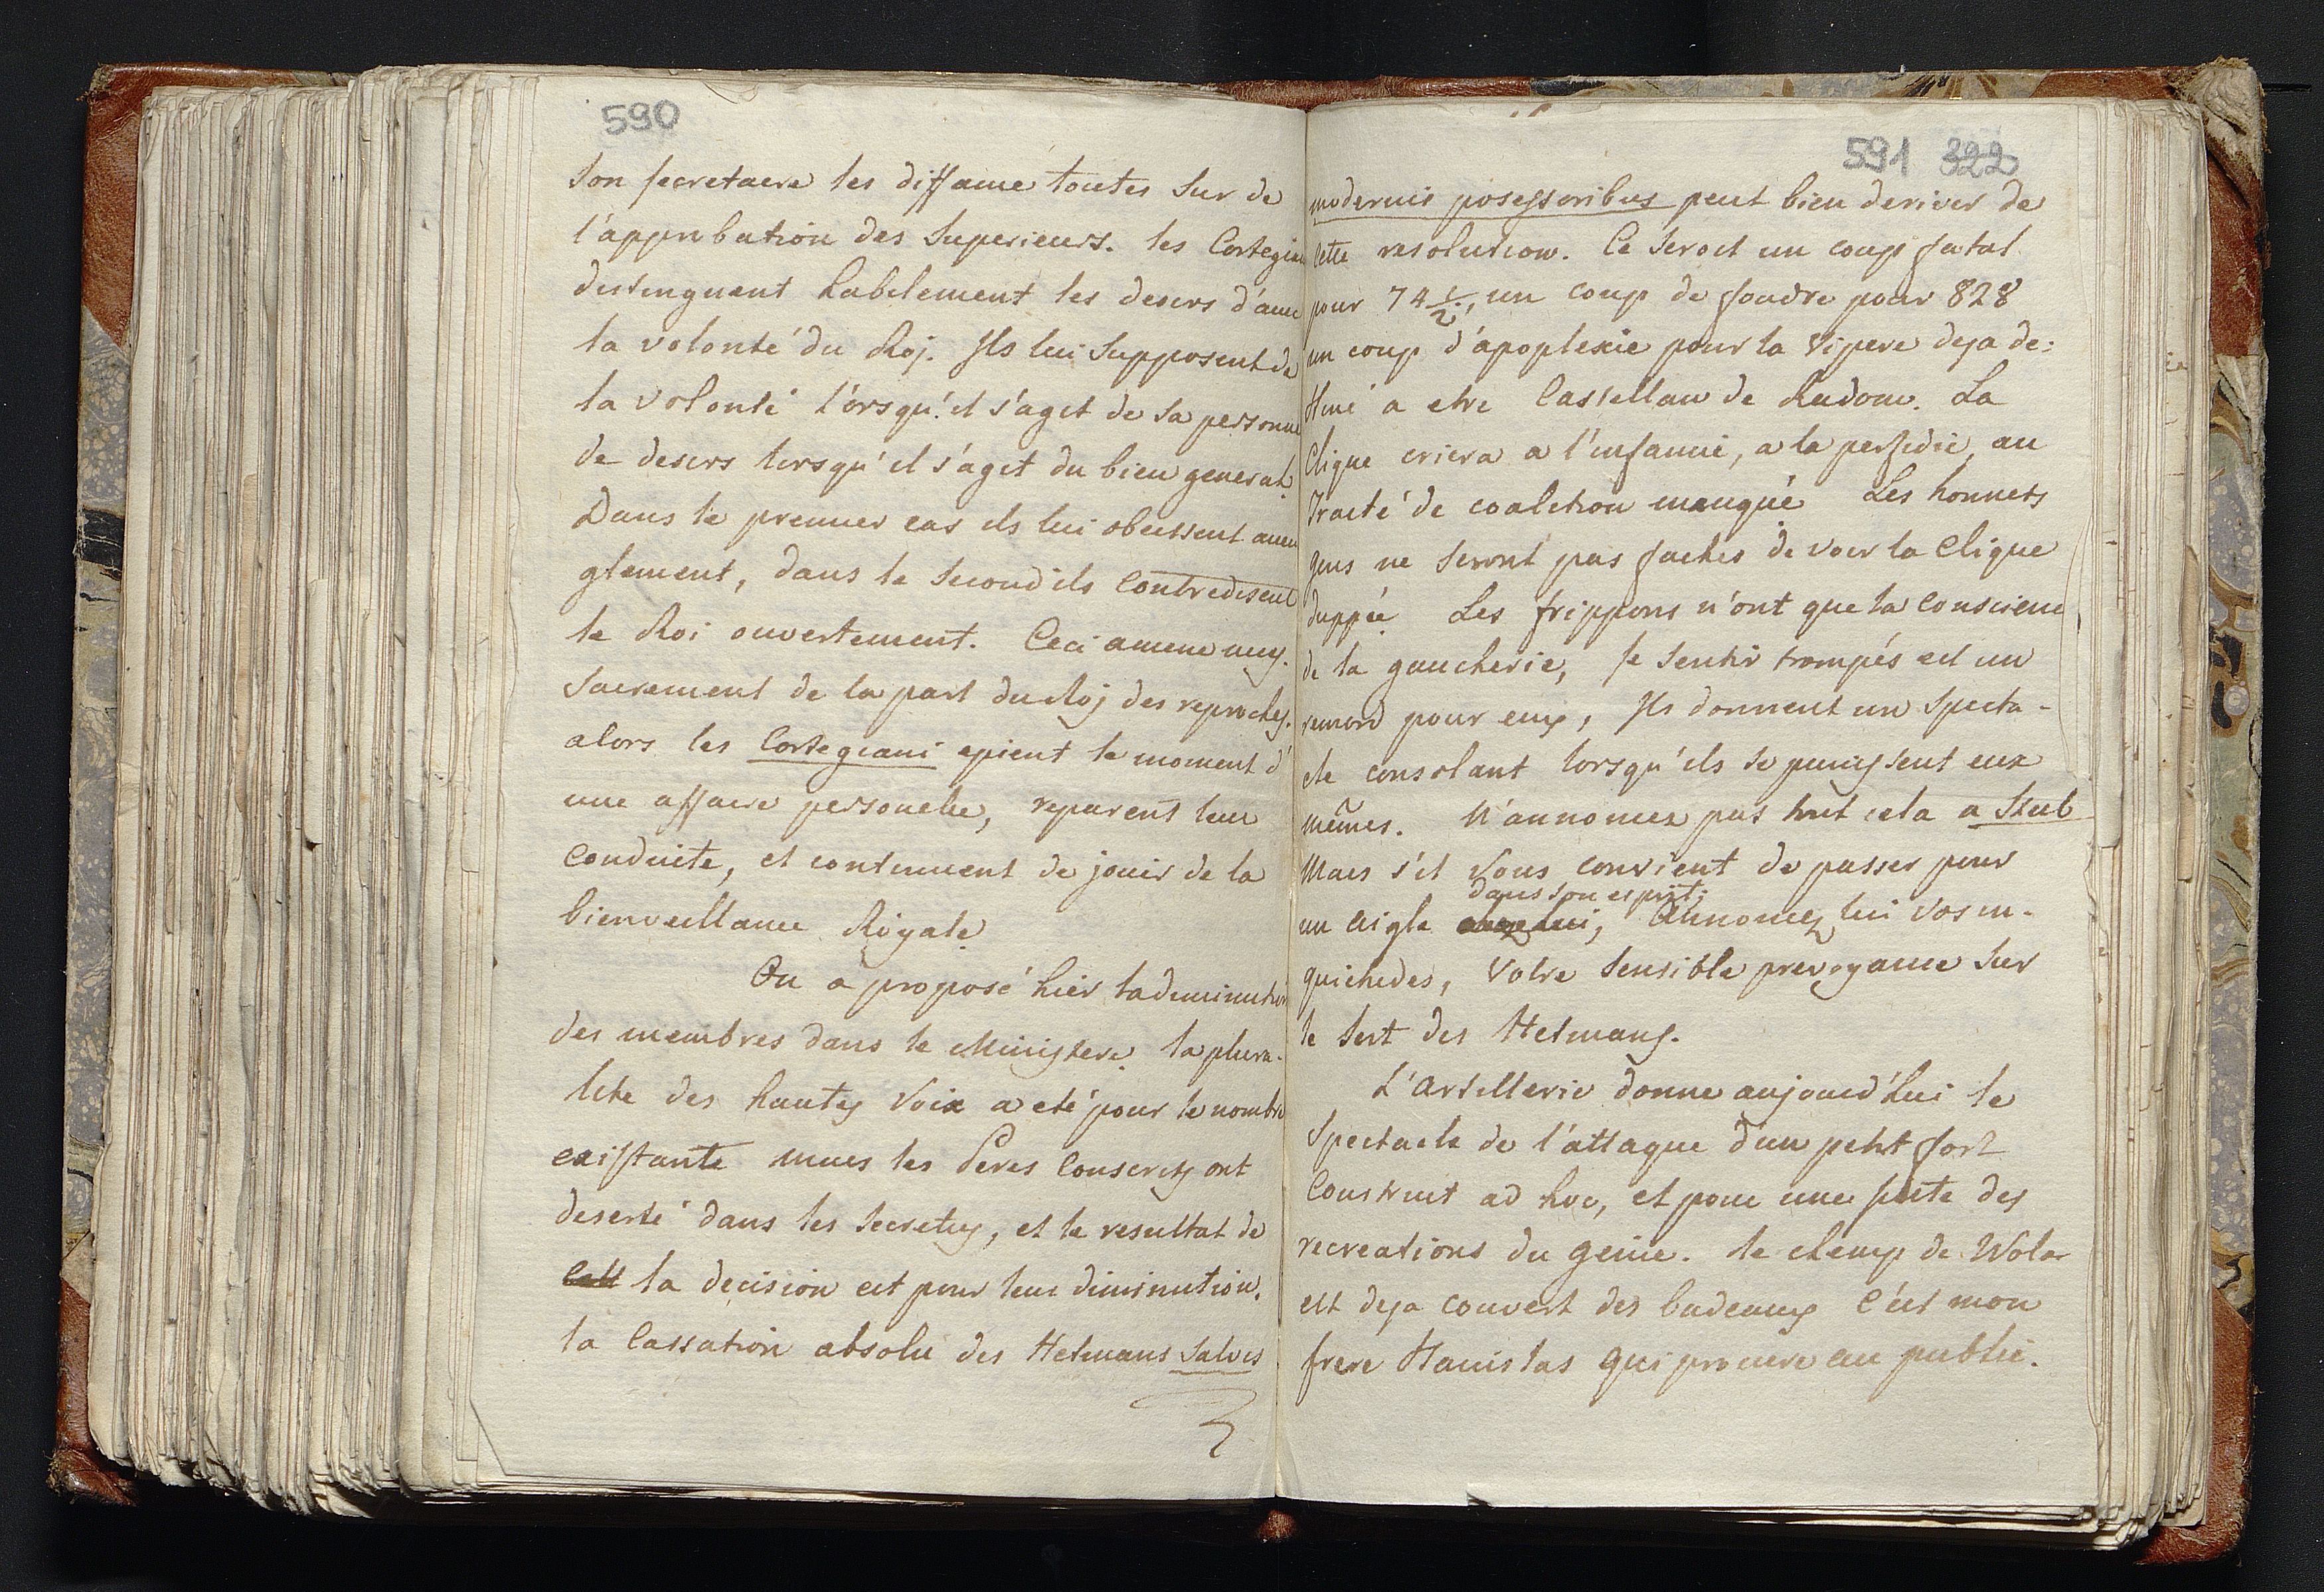 590
Son secretaere les diffame toutes Sur de
l'approbation des Superieurs. les Cortegiani
destenguent habilement les desirs d'avec
la volonté du Roj. Ils lui Supposent de
la volonté l'orsqu'il s'agit de Sa personne
de desirs lorsqu'il s'agit du bien general.
Dans le premier cas ils lui obeissent aveu
glement, dans le Second ils Contredisent
le Roi ouvertement. Ceci amene neç.
Sairement de la part du Roj des reproches.
alors les Cortegiani epient le moment d'
une affaire personelle, reparent leur
Conduite, et continuent de jouir de la
bienveillance Royale.
On a proposé hier la deminution
des membres dans le Ministere. la plura-
lite des hautes Voix a eté pour le nombre
existante mais les Peres Conscrits ont
deserté dans les Secretes, et le resultat de
Cett la decision est pour leur diminution.
la Cassation absolue des Hetmans Salvis
591 322
modernis posessoribus peut bien deriver de
Cette resolution. Ce Seroit un coup fatal
pour 74 1/2, un coup de foudre pour 828
un coup d'apoplexie pour la Vipere deja de:
stiné a etre Castellan de Radom. La
Clique criera a l'infamie, a la perfidie, au
Tracté de coalition manqué. Les honnets
gens ne Seront pas fachés de voir la Clique
duppée. Les frippons n'ont que la Conscience
de la gaucherie, Se Sentir trompés est un
remord pour eux, Ils donnent un Specta-
cle consolant lorsqu'ils Se punissent eux
mêmes. N'annoncez pas tout cela a Stul
Mais s'il Vous convient de passer pour
dans Son esprit;
un aigle chez lui, Annoncez lui vos in-
quietudes, Votre Sensible prevoyance Sur
le Sort des Hetmans.
L'Artillerie donne aujourd'hui le
Spectacle de l'attaque d'un petit fort
Construit ad hoc, et pour une Suite des
recreations du genie. le champ de Wola
est deja couvert des badeaux C'est mon
frere Stanislas qui procure au public.